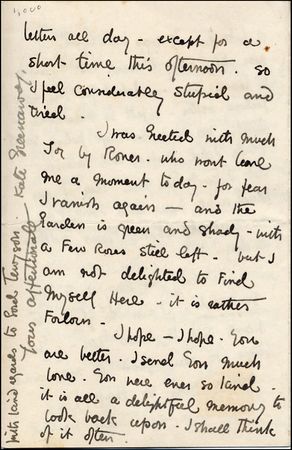 letter all day - except for a
short time this afternoon. so
I feel considerably stupid and
tired.
I was greeted with much
Joy by Rover. who wont leave
me a moment to day - for fear
I vanish again - and the
garden is green and shady - with
a Few Roses still left - but I
am not delighted to Find
Myself Here - it is rather
Forlorn -
I hope - I hope - You
are better. I send You much
love. You were ever so kind -
it is all a delightful memory to
look back upon. I shall Think
of it often.
With kind regards to
Yours affectionately Kate Greenaway.